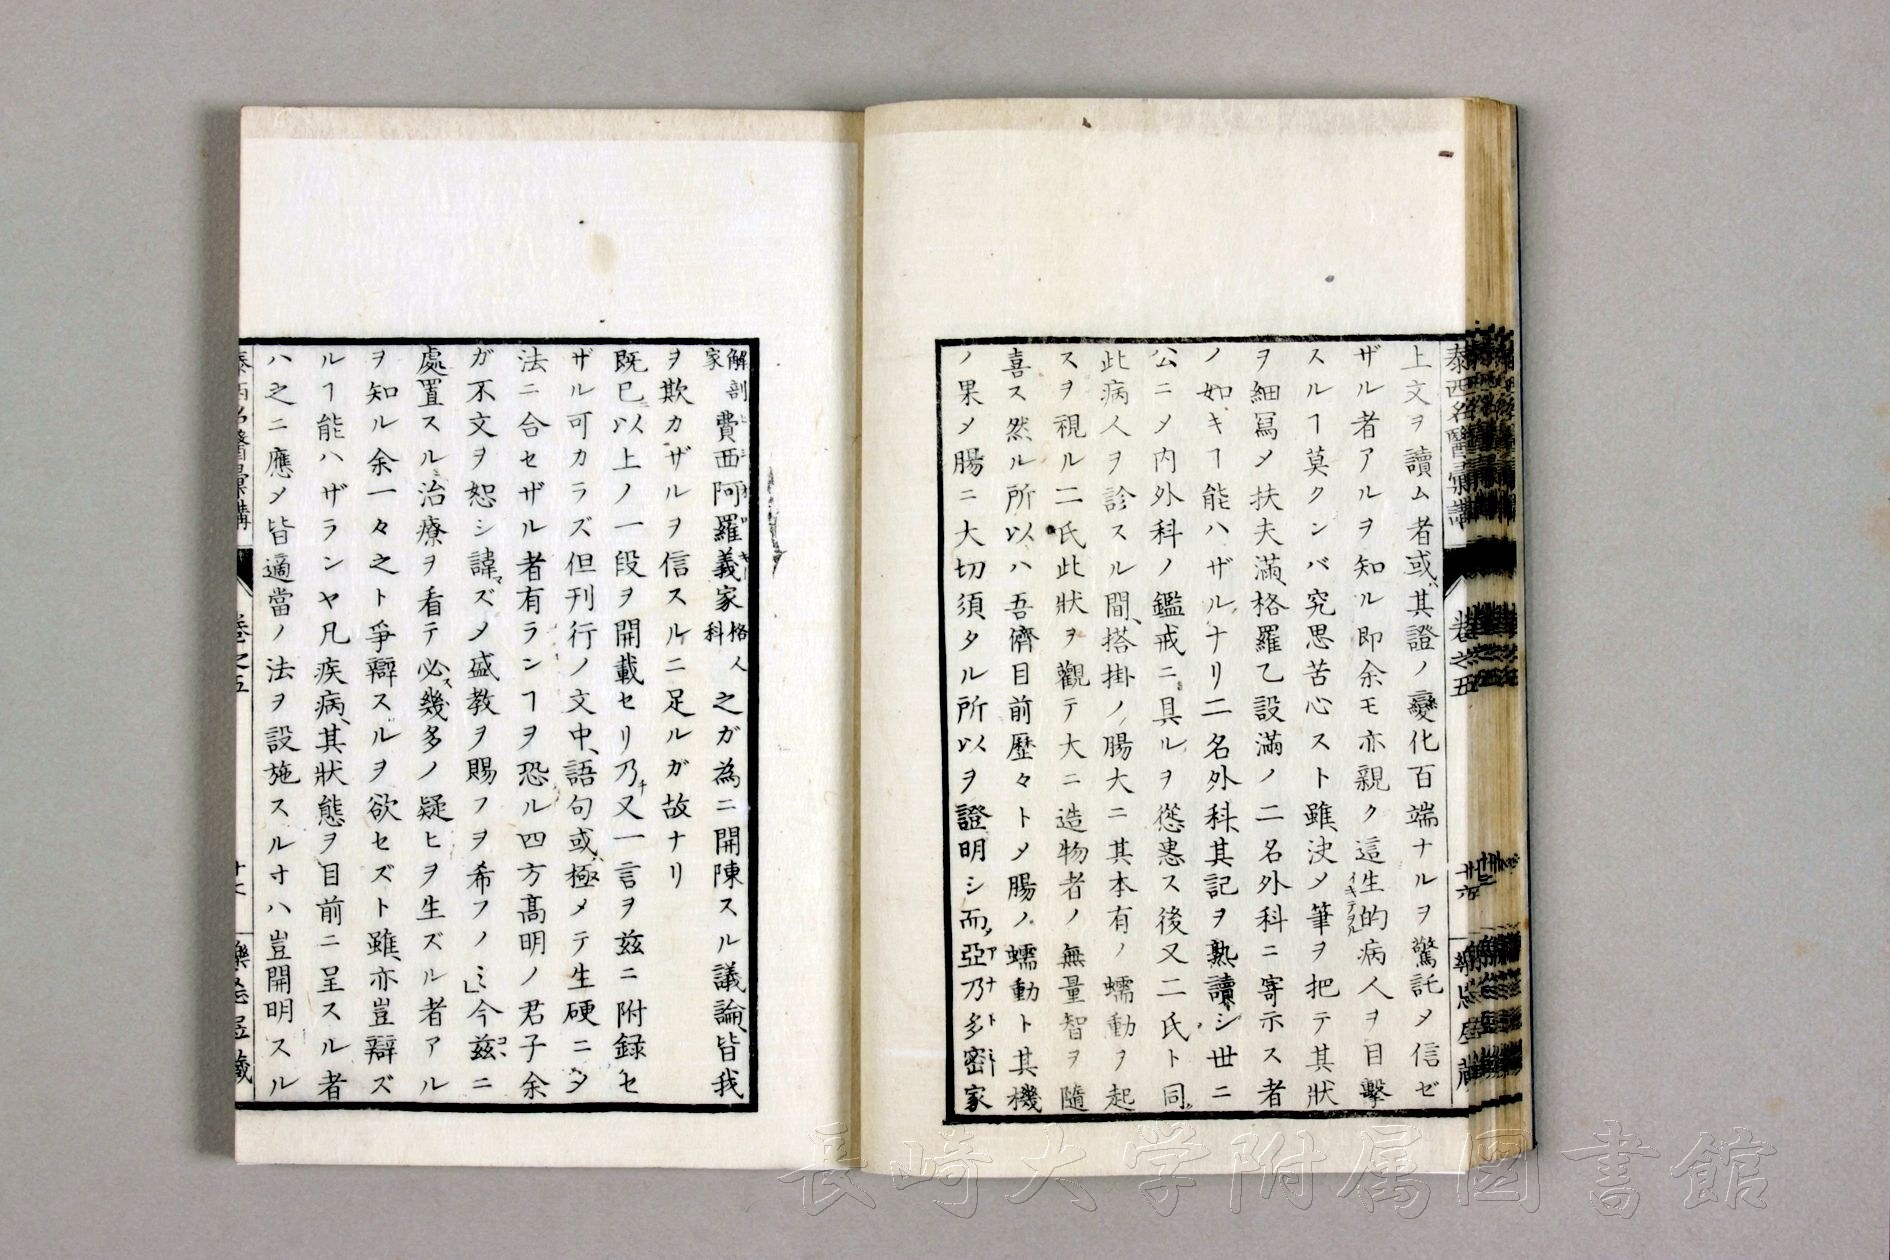 泰西名醫彙講
卷之五
上文ヲ讀ム者或ハ其證ノ變化百端ナルヲ驚託メ信ゼ
ザル者アルヲ知ル即余モ亦親ク這生的病人ヲ目擊
イキテヲル
スルヿ莫クンバ究思苦心スト雖決メ筆ヲ把テ其狀
ヲ細冩メ扶夫滿格羅乙設滿ノ二名外科ニ寄示ス者
ノ如キヿ能ハザルナリ二名外科其記ヲ熟讀シ世ニ
公ニメ内外科ノ鑑戒ニ具ルヲ慫恿ス後又二氏ト同
此病人ヲ診スル間搭掛ノ腸大ニ其本有ノ蠕動ヲ起
スヲ視ル二氏此狀ヲ觀テ大ニ造物者ノ無量智ヲ隨
喜ス然ル所以ハ吾儕目前歷々トメ腸ノ蠕動ト其機
ノ果メ腸ニ大切須タル所以ヲ證明シ而亞乃多密家
解剖家
費西阿羅義家
格科人
之ガ為ニ開陳スル議論皆我
ヲ欺カザルヲ信スルニ足ルガ故ナリ
既已以上ノ一段ヲ開載セリ乃又一言ヲ茲ニ附録セ
ザル可カラズ但刊行ノ文中語句或極メテ生硬ニメ
法ニ合セザル者有ランヿヲ恐ル四方高明ノ君子余
ガ不文ヲ恕シ諱ズメ盛教ヲ賜フヲ希フノミ今茲ニ
處置スル治療ヲ看テ必幾多ノ疑ヒヲ生ズル者アル
ヲ知ル余一々之ト爭辯スルヲ欲セズト雖亦豈辯ズ
ルヿ能ハザランヤ凡疾病其狀態ヲ目前ニ呈スル者
ハ之ニ應メ皆適當ノ法ヲ設施スル寸ハ豈開明スル
泰西名醫彙講
卷之五
長崎大学附属図書館